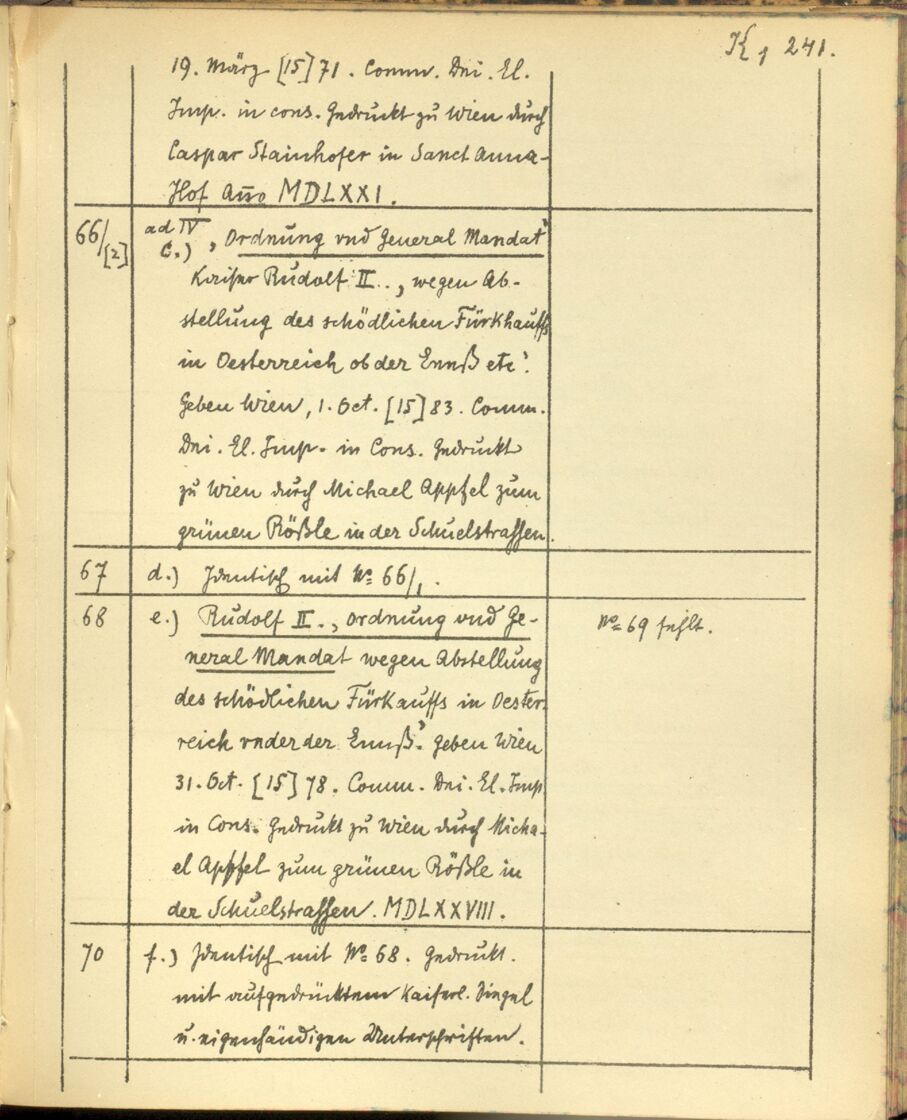 K, 241.
19. März [15]71. Comm. Dni. El.
Imp. in cons. Gedruckt zu Wien durch
Caspar Stainhofer in Sanct Anna-
Hof Año MDLXXI.
66/[2] ad IV
c.) „Ordnung vnd General Mandat‟
Kaiser Rudolf II.., wegen Ab-
stellung des schödlichen Fürkhauffs
in Oesterreich ob der Ennß etc‟.
Geben Wien, 1. Oct. [15]83. Comm.
Dni. El. Imp. in Cons. Gedruckt
zu Wien durch Michael Appfel zum
grünen Rößle in der Schuelstrassen.
67 d.) Identisch mit No 66/1.
68 e.) Rudolf II., Ordnung vnd Ge-
neral Mandat wegen Abstellung
des schödlichen Fürkauffs in Oester-
reich vnder der Ennß‟. Geben Wien
31. Oct. [15]78. Comm. Dni. El. Imp
in Cons. Gedruckt zu Wien durch Micha-
el Apffel zum grünen Rößle in
der Schuelstrassen. MDLXXVIII.
No 69 fehlt.
70 f.) Identisch mit No 68. Gedruckt.
mit aufgedrücktem Kaiserl. Siegel
u. eigenhändigen Unterschriften.